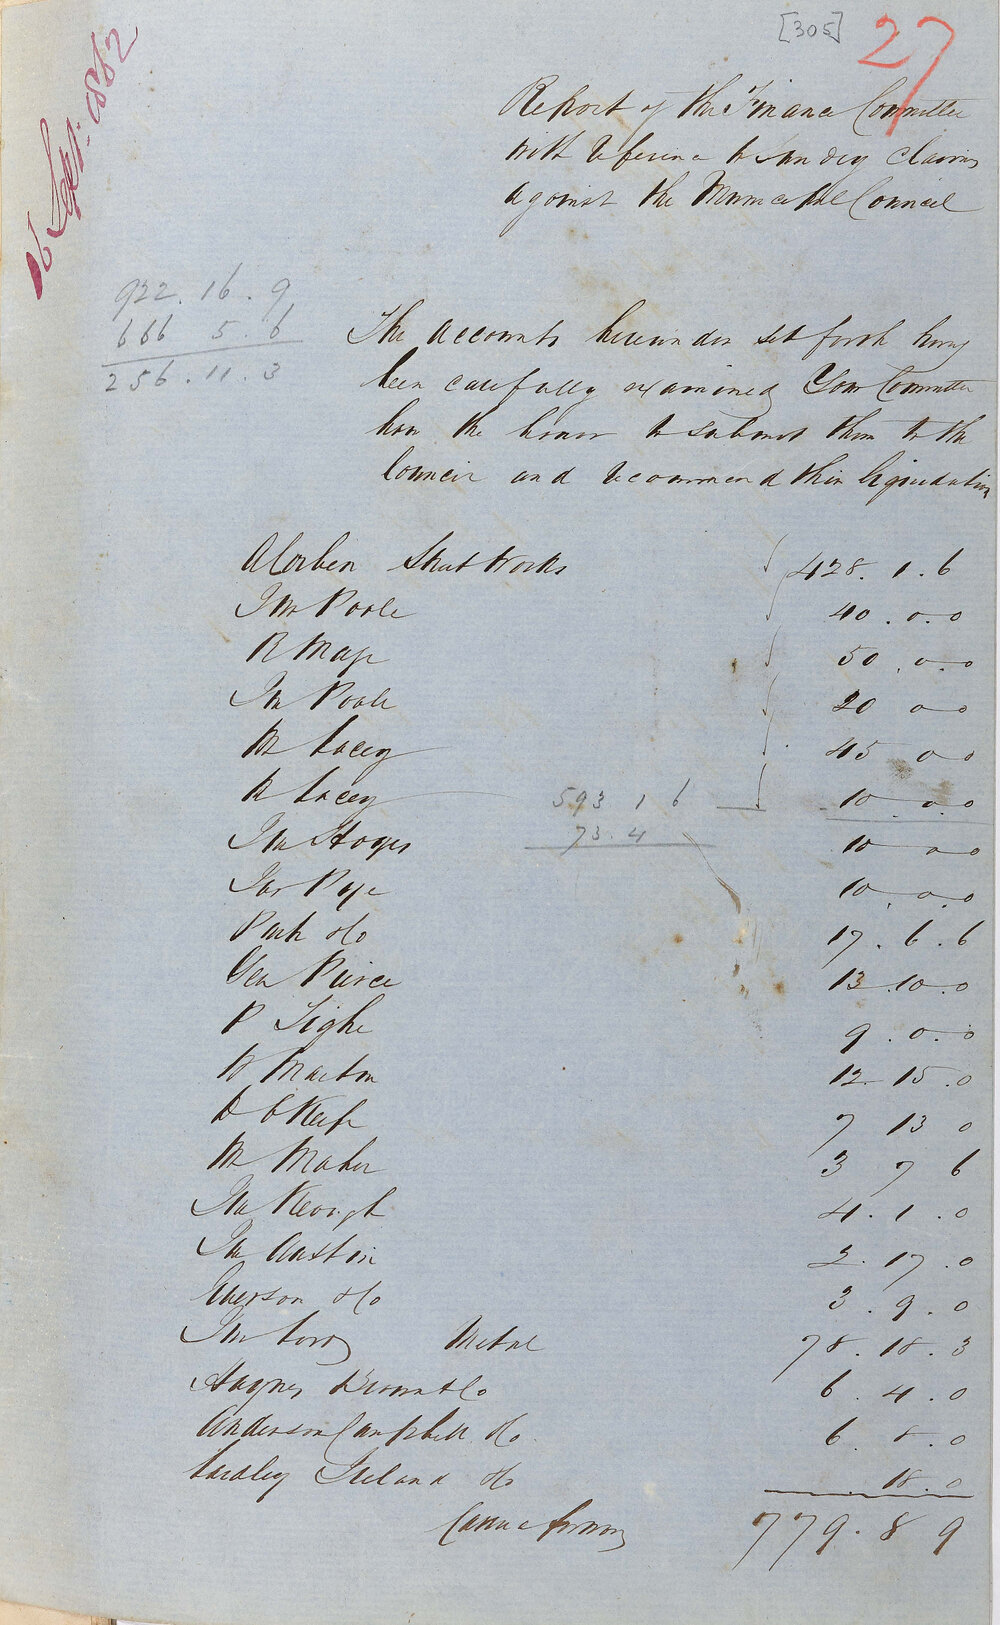 [305]
27
16 Sept: 1862
Report of the Finance Committee
with reference to Sundry claims
against the Municipal Council
922. 16. 9
666 5. 6
256. 11. 3
The accounts hereunder set forth having
been carefully examined Your Committee
have the honor to submit them to the
Council and recommend their liquidation
A Corben Street Works 428. 1. 6
Jno Poole 40. 0. 0
R May 50. 0. 0
Jno Poole 20 0 0
M Lacey 45 0 0
R Lacey 593 1 6 10. 0. 0
73. 4
Jno 10 0 0
Jas Page 10. 0. 0
Park &Co 17. 6. 6
Geo Pierce 13. 10. 0
P Tighe 9. 0. 0
W Marton 12. 15. 0
D O'Keefe 7 13 0
M Maher 3 7 6
Jno Keough 4. 1. 0
Jno Austin 2. 17. 0
Iverson &Co 3. 9. 0
Jno Metal 78. 18. 3
Haynes Brown & Co 6. 4. 0
Anderson Campbell &Co 6. 8. 0
Lardley Ireland &Co 18. 0
779. 8 9